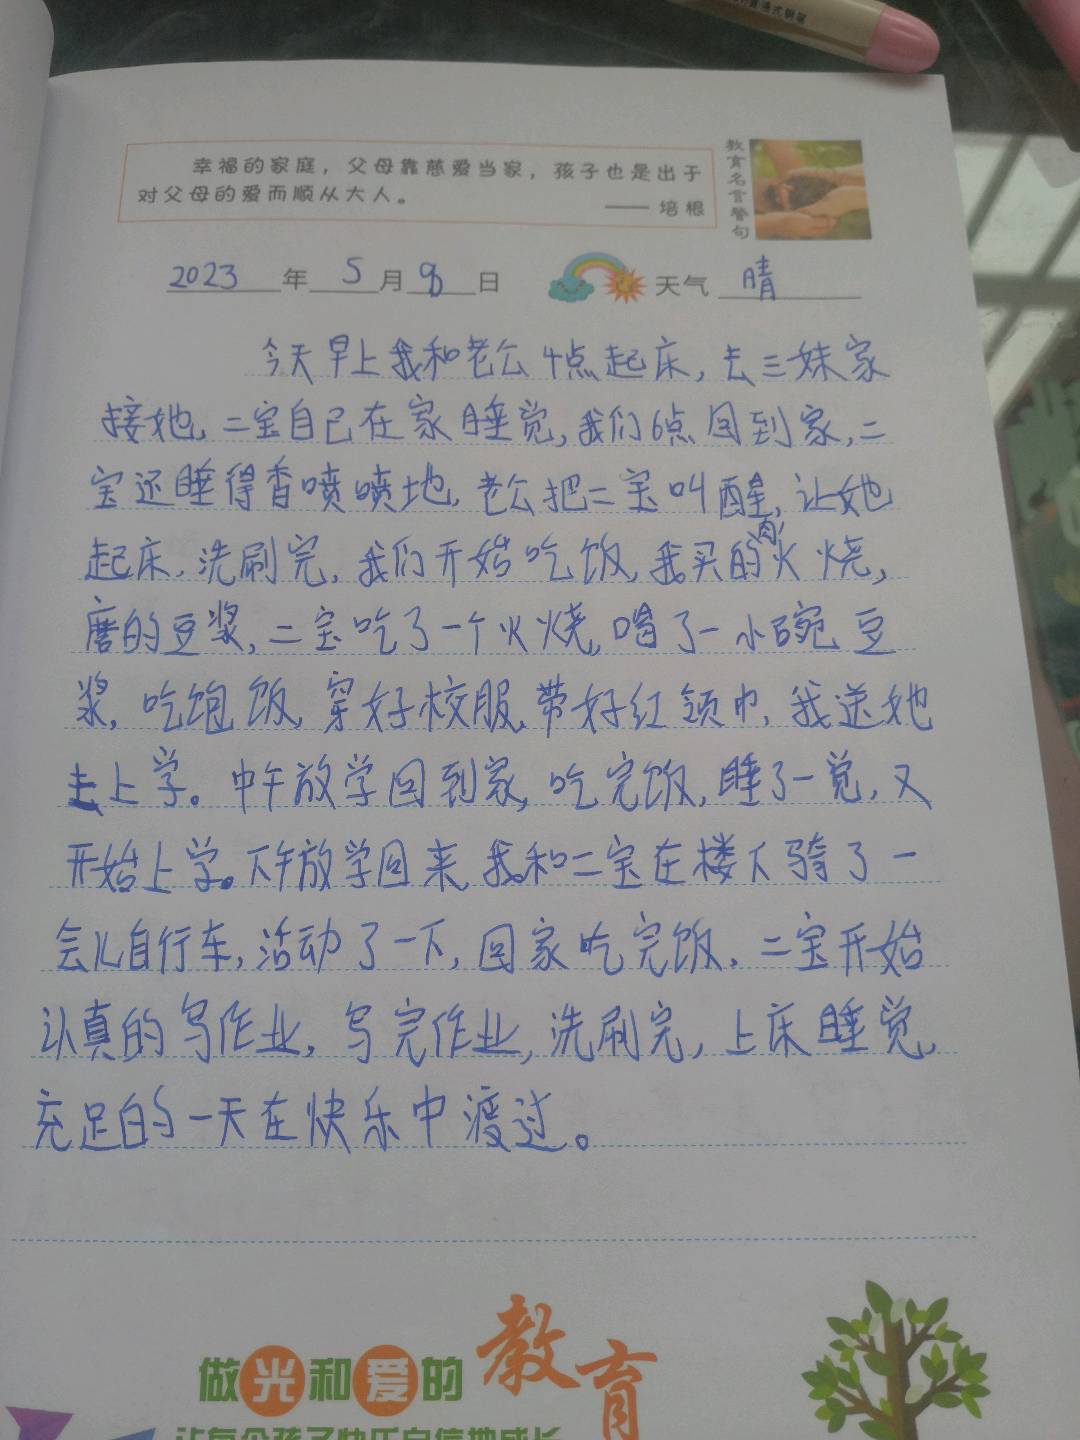 幸福的家庭，父母靠慈爱当家，孩子也是出于
对父母的爱而顺从大人。
—— 培根
教育名言警句
2023年5月8日 天气 晴
今天早上我和老公4点起床,去三妹家
接她,二宝自己在家睡觉,我们6点回到家,二
宝还睡得香喷喷地,老公把二宝叫醒,让她
起床,洗刷完,我们开始吃饭,我买的肉火烧,
磨的豆浆,二宝吃了一个火烧,喝了一小碗豆
浆,吃饱饭,穿好校服,带好红领巾,我送她
去上学。中午放学回到家,吃完饭,睡了一觉,又
开始上学。下午放学回来,我和二宝在楼下骑了一
会儿自行车,活动了一下,回家吃完饭,二宝开始
认真的写作业,写完作业,洗刷完,上床睡觉,
充足的一天在快乐中渡过。
做光和爱的教育
让每个孩子快乐自信地成长